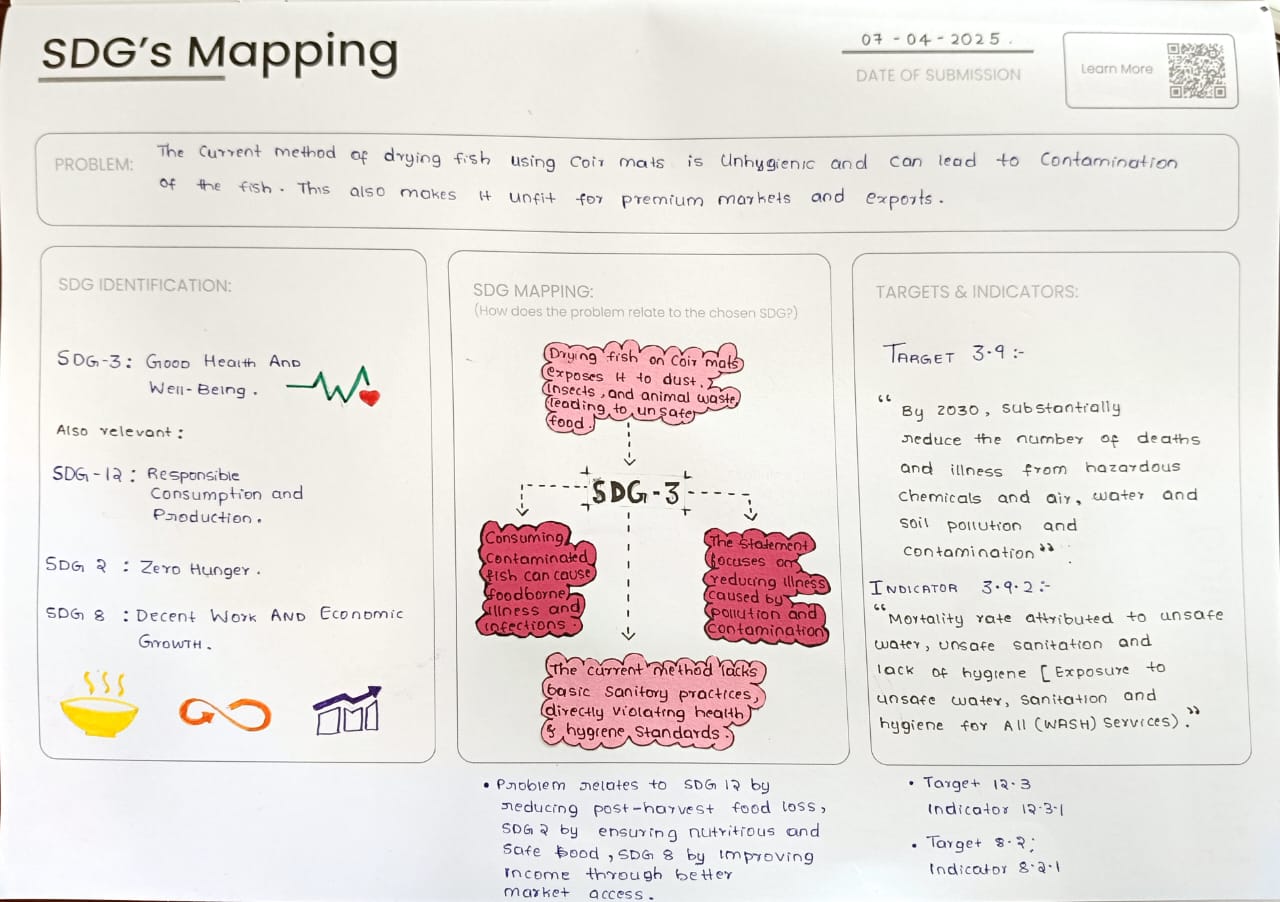 SDG's Mapping
07-04-2025.
DATE OF SUBMISSION
Learn More
PROBLEM:
The Current method of drying fish using Coir mats is Unhygienic and can lead to Contamination
of the fish. This also makes it unfit for premium markets and exports.
SDG IDENTIFICATION:
SDG-3: Good Health And
Well-Being.
Also relevant:
SDG-12: Responsible
Consumption and
Production.
SDG 2 : Zero Hunger.
SDG 8 : Decent Work And Economic
Growth.
SDG MAPPING:
(How does the problem relate to the chosen SDG?)
Drying fish on Coir mats
exposes it to dust,
insects, and animal waste,
leading to unsafe
food.
SDG-3
Consuming
Contaminated
fish can cause
foodborne
illness and
infections.
The Statement
focuses on
reducing illness
caused by
pollution and
contamination
The current method lacks
basic Sanitory practices,
directly violating health
& hygiene Standards.
• Problem relates to SDG 12 by
reducing post-harvest food loss,
SDG 2 by ensuring nutritious and
Safe food, SDG 8 by improving
income through better
market access.
TARGETS & INDICATORS:
Target 3.9:-
“ By 2030, substantially
reduce the number of deaths
and illness from hazardous
Chemicals and air, water and
Soil pollution and
contamination”
Indicator 3.9.2:-
“Mortality rate attributed to unsafe
water, unsafe sanitation and
lack of hygiene [Exposure to
unsafe water, sanitation and
hygiene for All (WASH) Services).”
• Target 12.3
Indicator 12.3.1
• Target 8.2;
Indicator 8.2.1